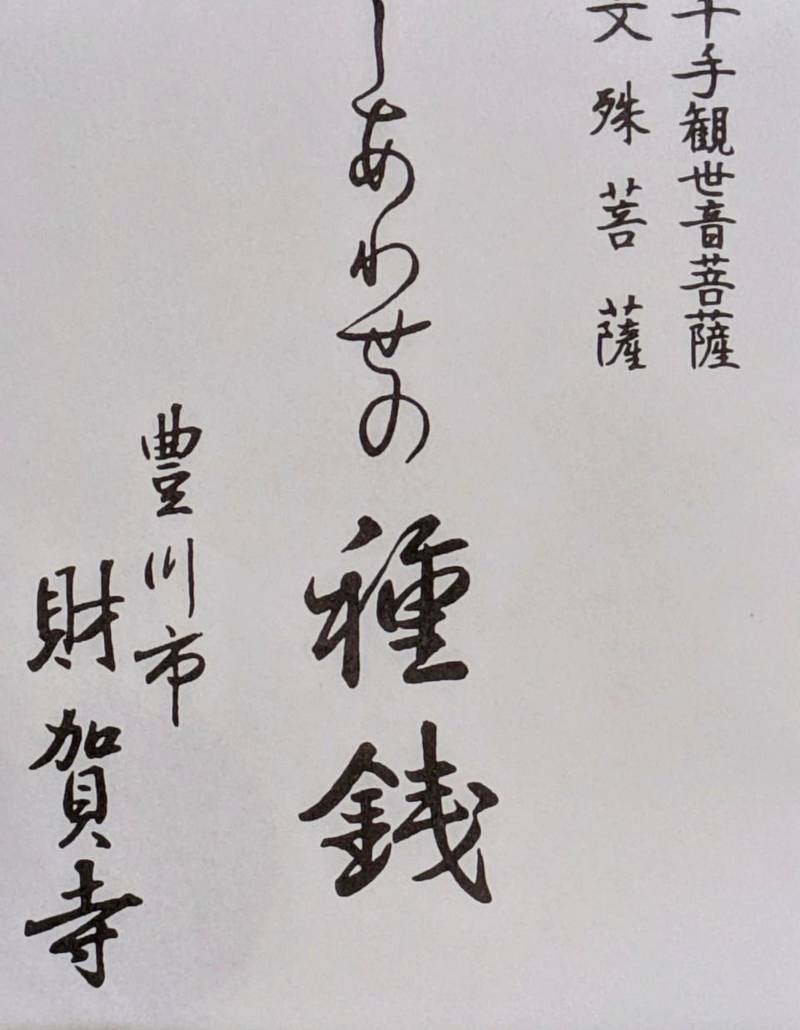 千手観世音菩薩
文殊菩薩
しあわせの種銭
豊川市
財賀寺